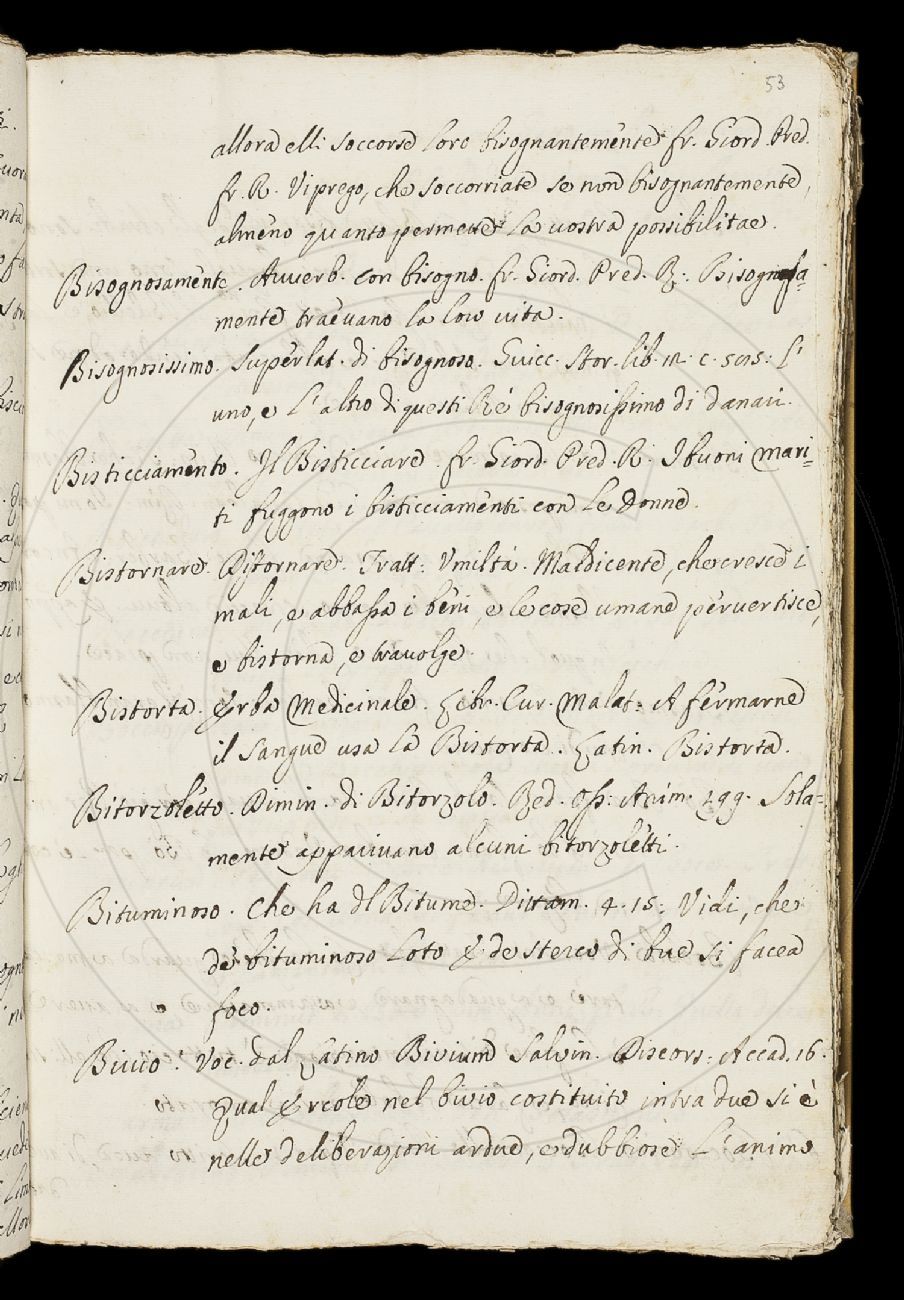 53
allora elli soccorse loro bisognantemente fr. Giord. Pred.
fr. R. Vi prego, che soccorriate se non bisognantemente,
almeno quanto permette la vostra possibilitae.
Bisognosamente. Avverb. con bisogno. fr. Giord. Pred. R. Bisognosa=
mente traevano la loro vita.
Bisognosissimo. Superlat. di bisognoso. Guicc. Stor. lib. c. L'
uno, e l'altro di questi Re bisognosissimo di danari.
Bisticciamento. Il Bisticciare. fr. Giord. Pred. R. I buoni mari=
ti fuggono i bisticciamenti con le donne.
Bistornare. Distornare. Tratt: Umiltà. Maldicente, che cresce i
mali, e abbassa i beni, e le cose umane pervertisce,
e bistorna, e travolge.
Bistorta. Erba medicinale. Libr. Cur. Malat: A fermarne
il sangue usa la Bistorta. Latin. Bistorta.
Bitorzoletto. Dimin. di Bitorzolo. Red. Oss: Anim. 199. Sola=
mente apparivano alcuni bitorzoletti.
Bituminoso. Che ha del Bitume. Dittam. 4. 15: Vidi, che
de bituminoso loto & de sterco di bue si facea
foco.
Bivio: Voc. dal Latino Bivium Salvin. Discors: Accad. 16.
Qual Ercole nel bivio costituito intra due si è
nelle deliberazioni ardue, e dubbiose l'animo